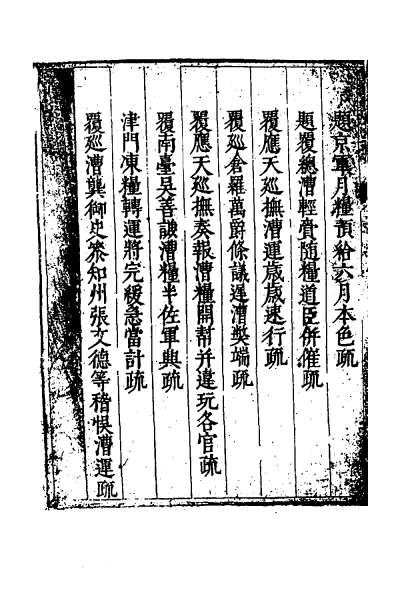 題京軍月糧預給六月本色疏
題覆總漕輕賫隨糧道臣併催疏
覆應天巡撫漕運歲歲速行疏
覆巡倉羅萬爵條議運漕獘端疏
覆應天巡撫奏報漕糧開幫并違玩各官疏
覆南臺吳善謙漕糧半佐軍興疏
津門凍糧轉運將完緩急當計疏
覆巡漕龔御史叅知州張文德等稽悞漕運疏